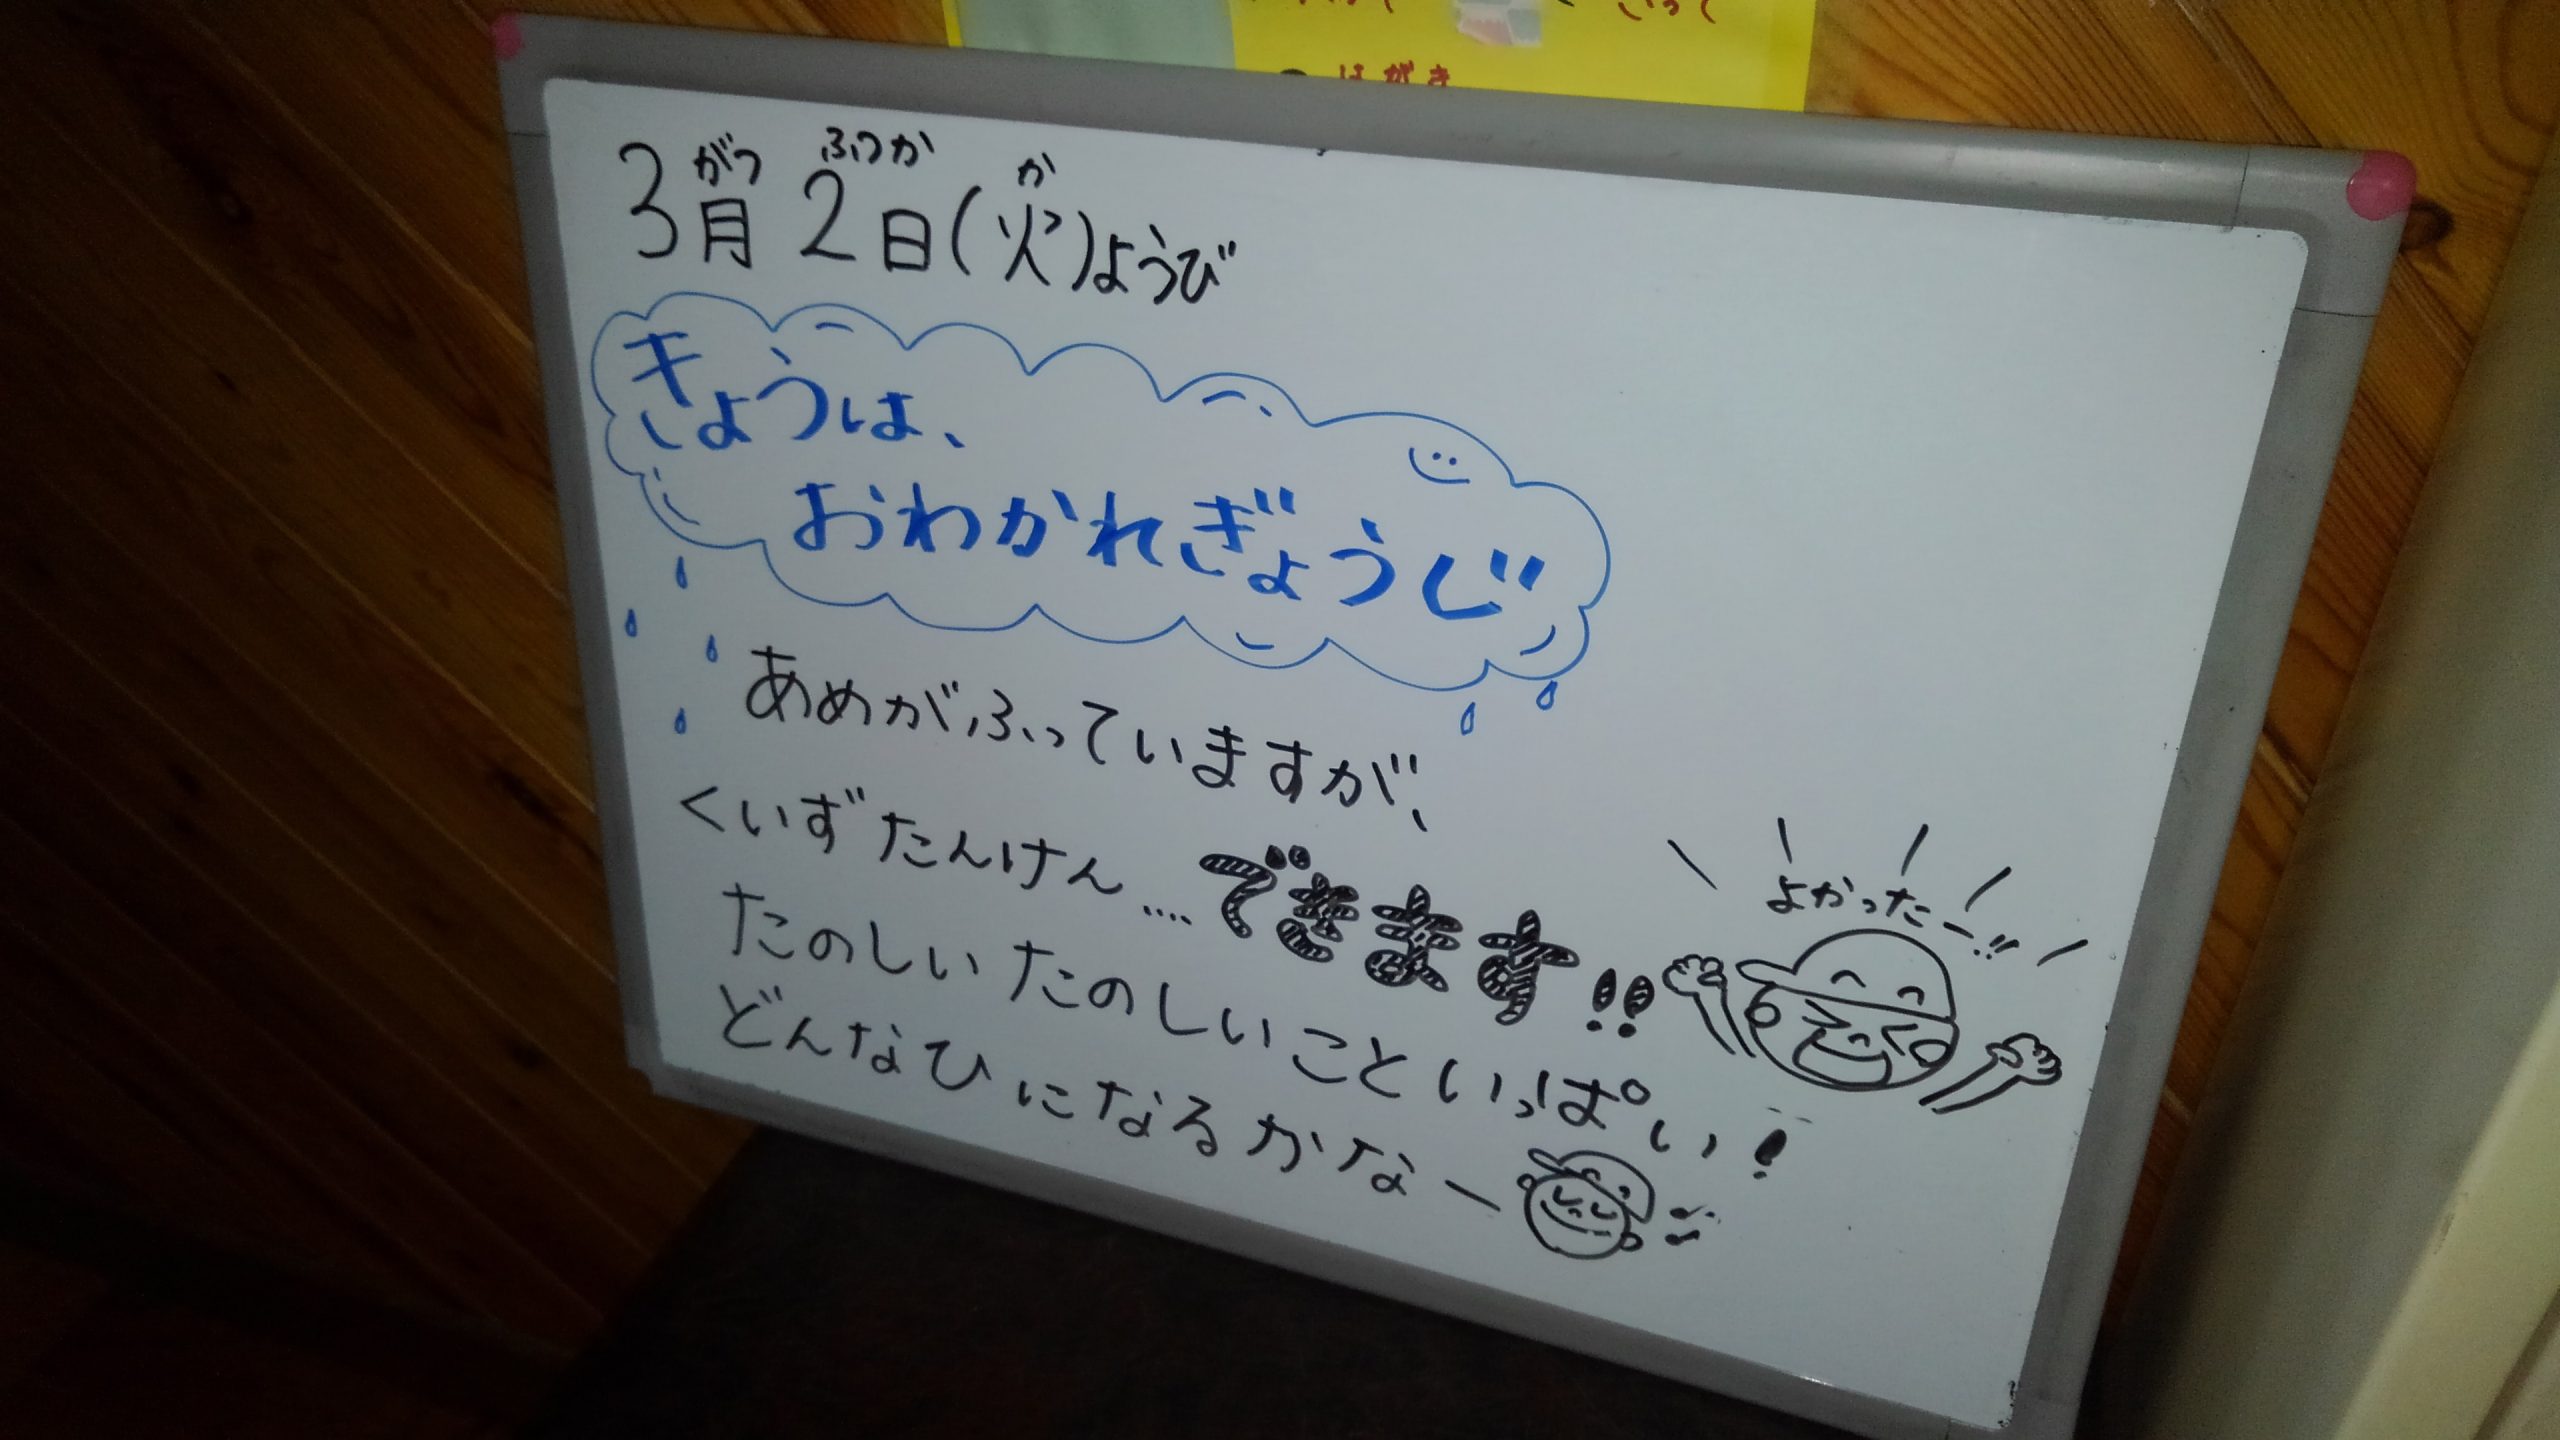 はがき
がつ ふつか か
3月2日(火)ようび
きょうは、
おわかれぎょうじ
あめがふっていますが、
くいずたんけん....できます!!
よかったー!!
たのしいたのしいこといっぱい!
どんなひになるかなー